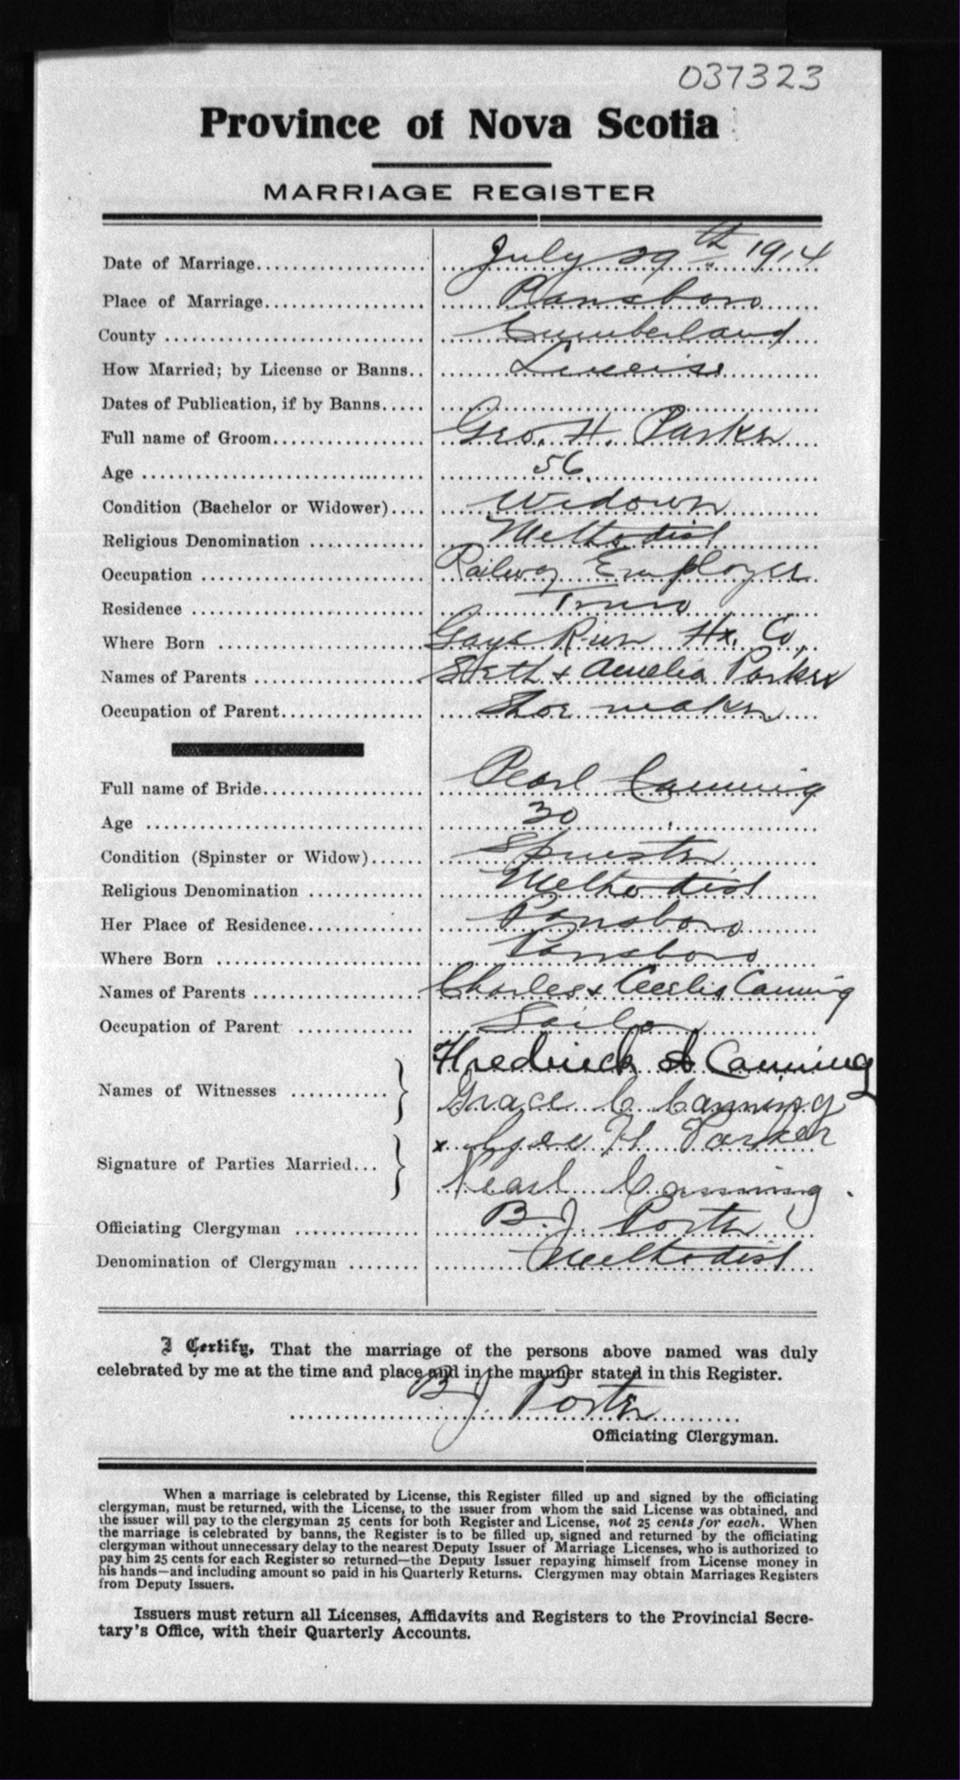 037323
Province of Nova Scotia
MARRIAGE REGISTER
Date of Marriage.................... July 29th 1914
Place of Marriage.................... Parrsboro
County .................... Cumberland
How Married; by License or Banns.. License
Dates of Publication, if by Banns.....
Full name of Groom.................... Geo. H. Parker
Age .................... 56
Condition (Bachelor or Widower).... Widower
Religious Denomination .................... Methodist
Occupation .................... Railway Employee
Residence .................... Truro
Where Born .................... Gays River Hx. Co.
Names of Parents .................... Seth & Amelia Parker
Occupation of Parent.................... Shoe maker
Full name of Bride.................... Pearl Canning
Age .................... 30
Condition (Spinster or Widow)...... Spinster
Religious Denomination .................... Methodist
Her Place of Residence.................... Parrsboro
Where Born .................... Parrsboro
Names of Parents .................... Charles & Cecelia Canning
Occupation of Parent .................... Sailor
Fredrick A Canning
Names of Witnesses ...........
Grace C Canning
x Geo H Parker
Signature of Parties Married...
Pearl Canning.
Officiating Clergyman .................... B. J. Porter
Denomination of Clergyman ........ Methodist
I Certify, That the marriage of the persons above named was duly
celebrated by me at the time and place and in the manner stated in this Register.
B J. Porter
Officiating Clergyman.
When a marriage is celebrated by License, this Register filled up and signed by the officiating
clergyman, must be returned, with the License, to the issuer from whom the said License was obtained, and
the issuer will pay to the clergyman 25 cents for both Register and License, not 25 cents for each. When
the marriage is celebrated by banns, the Register is to be filled up, signed and returned by the officiating
clergyman without unnecessary delay to the nearest Deputy Issuer of Marriage Licenses, who is authorized to
pay him 25 cents for each Register so returned—the Deputy Issuer repaying himself from License money in
his hands—and including amount so paid in his Quarterly Returns. Clergymen may obtain Marriages Registers
from Deputy Issuers.
Issuers must return all Licenses, Affidavits and Registers to the Provincial Secre-
tary's Office, with their Quarterly Accounts.